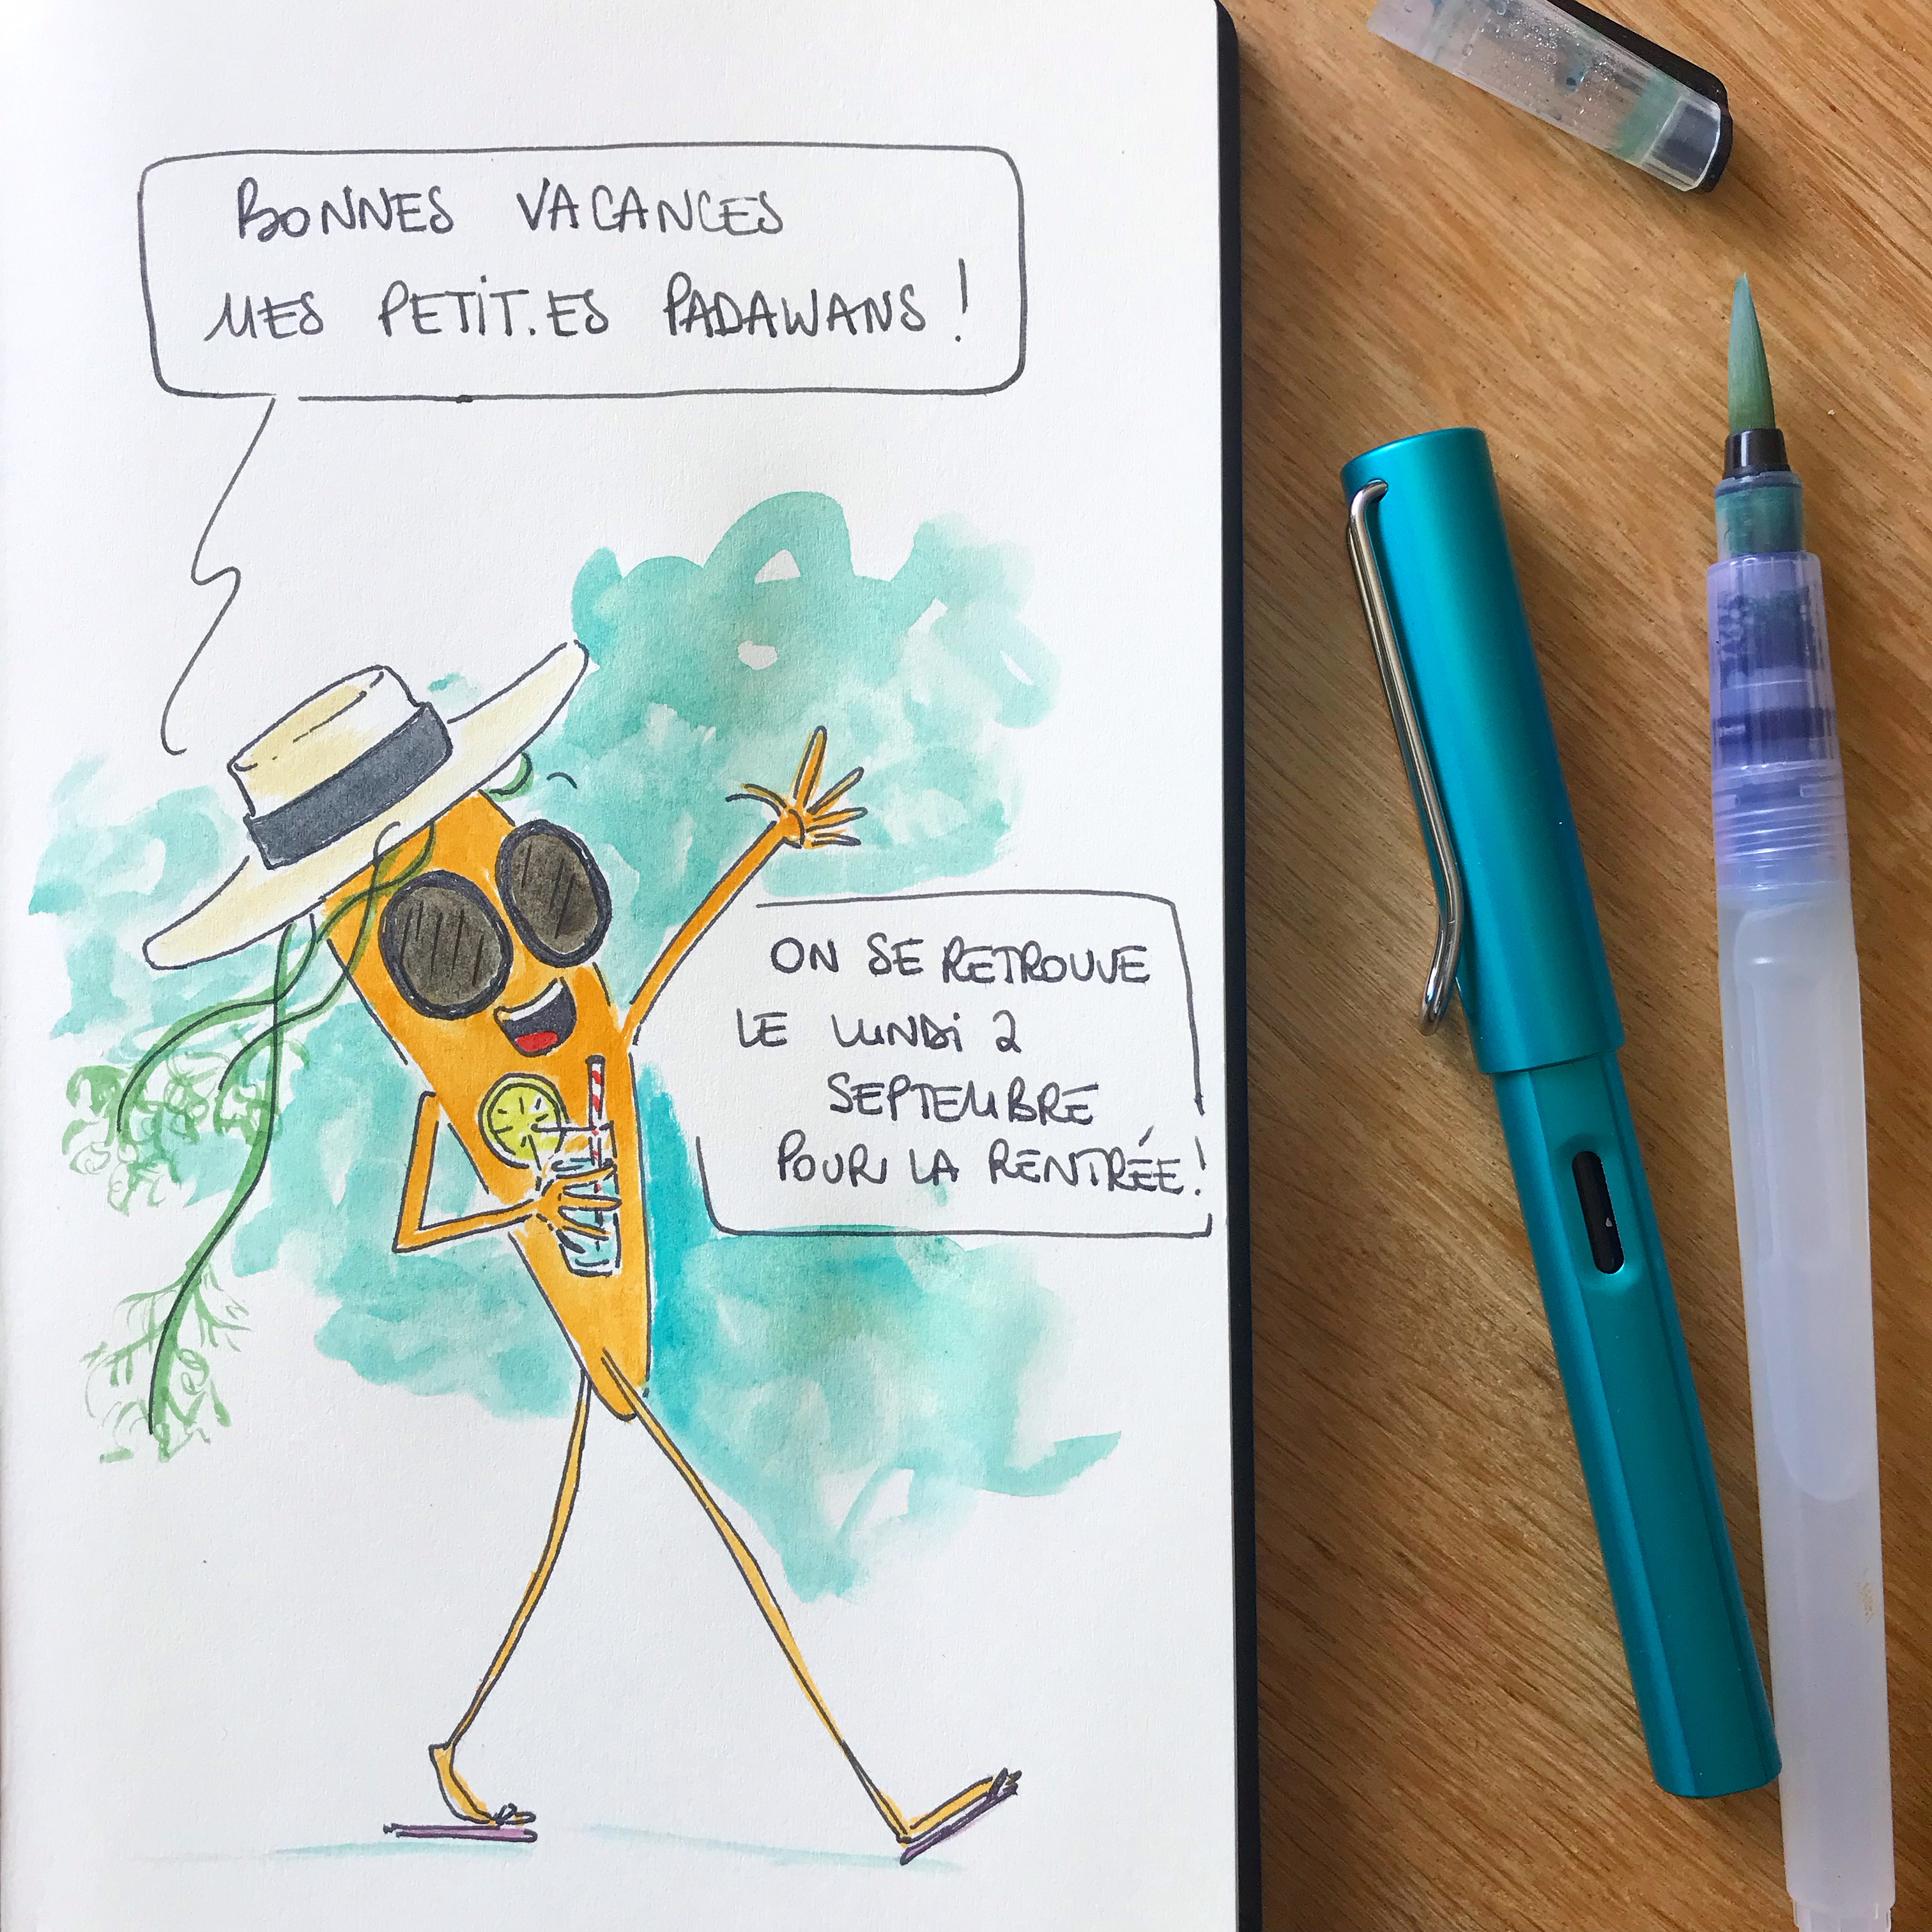 BONNES VACANCES
MES PETIT.ES PADAWANS !
ON SE RETROUVE
LE LUNDI 2
SEPTEMBRE
POUR LA RENTRÉE !